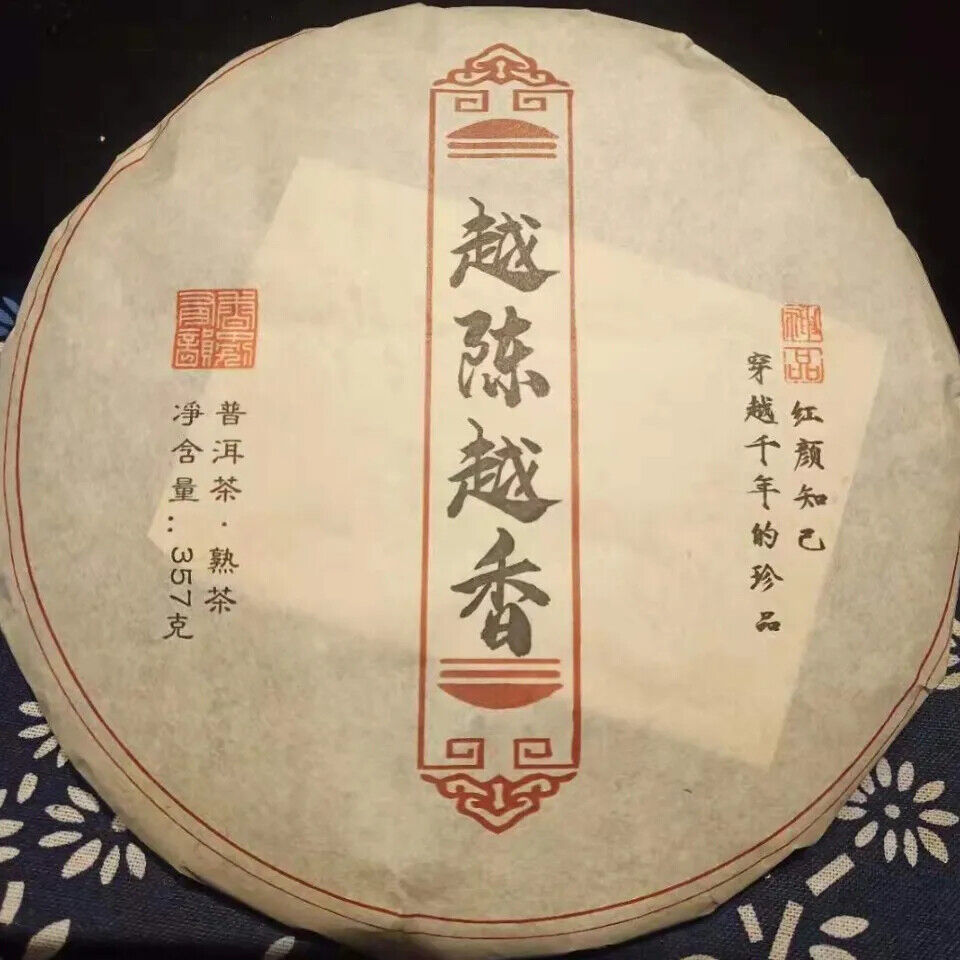 越陈越香
珍品
红颜知己
穿越千年的珍品
普洱茶·熟茶
净含量:357克